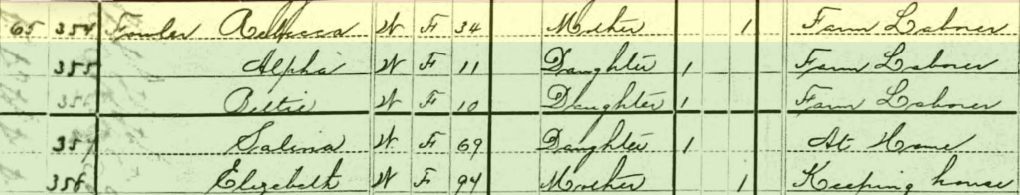 65 354 Fowler Rebecca W F 34 Mother 1 Farm Laborer
355 Alpha W F 11 Daughter 1 Farm Laborer
356 Bettie W F 10 Daughter 1 Farm Laborer
357 Salina W F 69 Daughter 1 At Home
358 Elizebeth W F 94 Mother 1 Keeping house